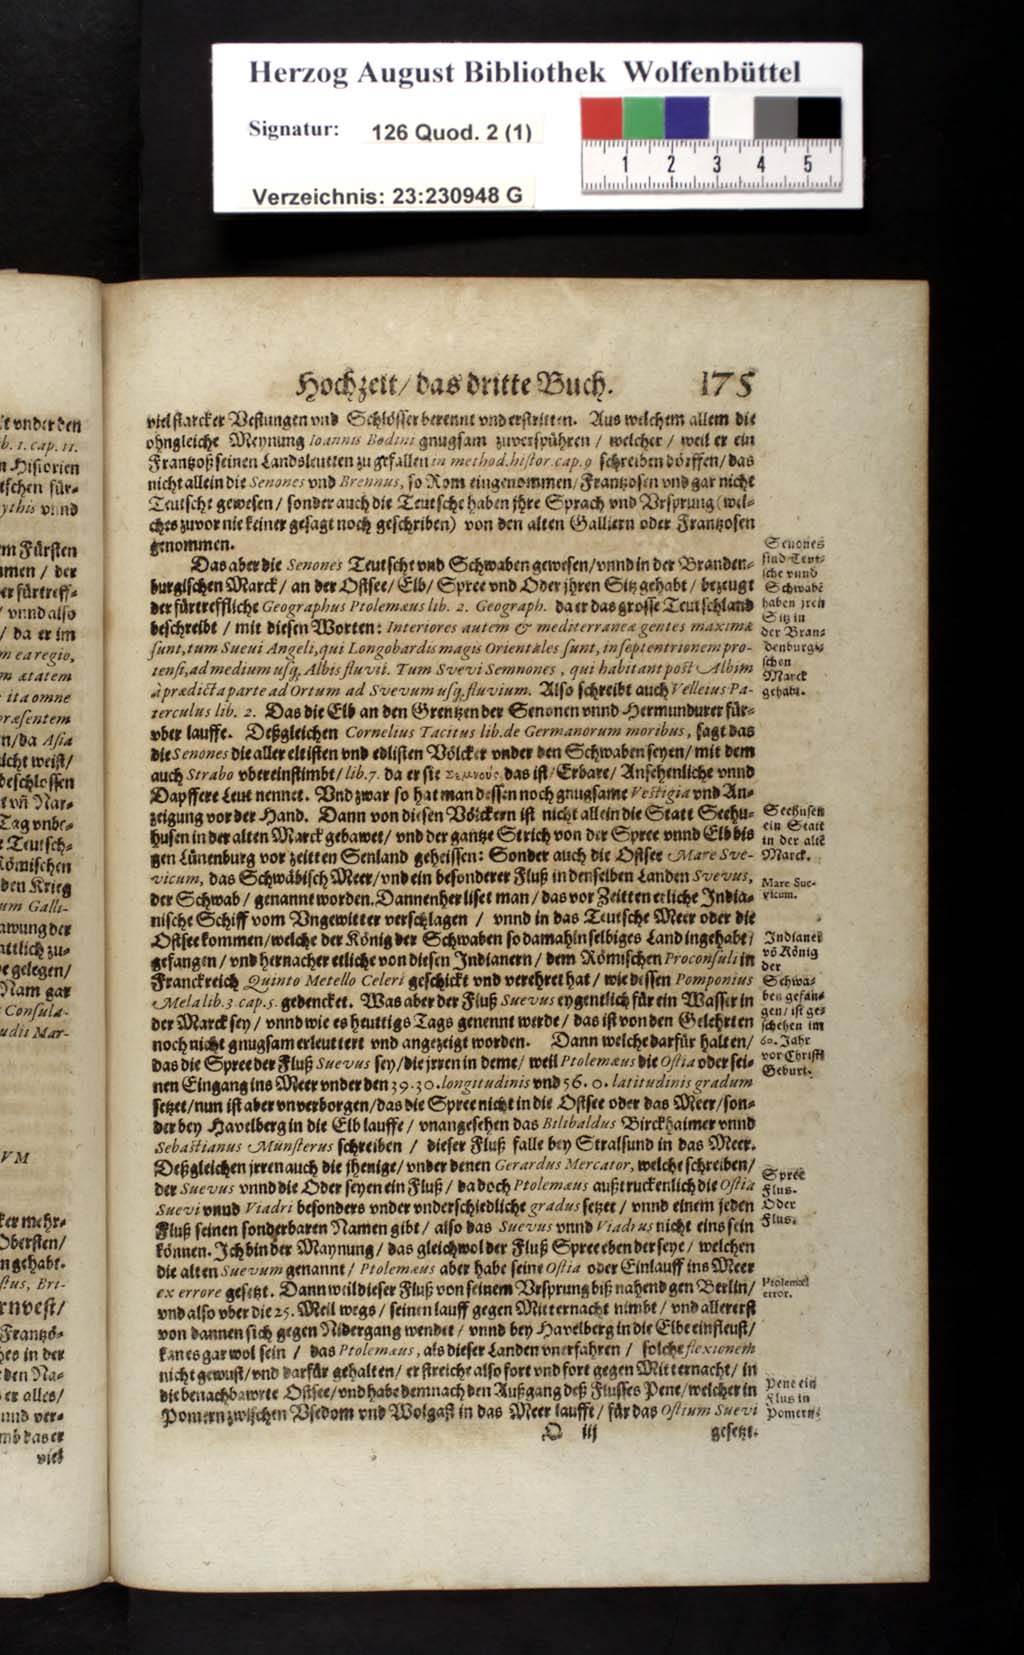 Herzog August Bibliothek Wolfenbüttel
Signatur: 126 Quod. 2 (1)
1 2 3 4 5
Verzeichnis: 23:230948 G
Hochzeit/ das dritte Buch. 175
viel starcker Vestungen vnd Schlösser berennt vnd erstritten. Aus welchem allem die
ohngleiche Meynung Ioannis Bodini gnugsam zuverspühren / welcher / weil er ein
Frantzoß seinen Landsleutten zu gefallen in method. histor. cap. 9 schreiben dörffen/ das
nicht allein die Senones vnd Brennus, so Rom eingenommen/ Frantzosen vnd gar nicht
Teutsche gewesen / sonder auch die Teutsche haben jhre Sprach vnd Vrsprung (wel-
ches zuvor nie keiner gesagt noch geschriben) von den alten Galliern oder Frantzosen
genommen.
Das aber die Senones Teutsche vnd Schwaben gewesen/ vnnd in der Branden-
burgischen Marck / an der Ostsee/ Elb/ Spree vnd Oder jhren Sitz gehabt / bezeugt
der fürtreffliche Geographus Ptolemæus lib. 2. Geograph. da er das grosse Teutschland
beschreibt / mit diesen Worten: Interiores autem & mediterraneæ gentes maximæ
sunt, tum Suevi Angeli, qui Longobardis magis Orientales sunt, in septentrionem pro-
tensi, ad medium usq; Albis fluvii. Tum Svevi Semnones, qui habitant post Albim
à prædicta parte ad Ortum ad Svevum usq; fluvium. Also schreibt auch Velleius Pa-
terculus lib. 2. Das die Elb an den Grentzen der Senonen vnnd Hermundurer für-
vber lauffe. Deßgleichen Cornelius Tacitus lib. de Germanorum moribus, sagt das
die Senones die aller eltisten vnd edlisten Völcker vnder den Schwaben seyen/ mit dem
auch Strabo vbereinstimbt/ lib. 7. da er sie Σεμνούς das ist/ Erbare/ Ansehenliche vnnd
Dapffere Leut nennet. Vnd zwar so hat man dessen noch gnugsame Vestigia vnd An-
zeigung vor der Hand. Dann von diesen Völckern ist nicht allein die Statt Seehu-
husen in der alten Marck gebawet/ vnd der gantze Strich von der Spree vnnd Elb bis
gen Lünenburg vor zeitten Senland geheissen: Sonder auch die Ostsee Mare Sve-
vicum, das Schwäbisch Meer/ vnd ein besonderer Fluß in denselben Landen Svevus,
der Schwab / genannt worden. Dannenher liset man / das vor Zeitten etliche India-
nische Schiff vom Vngewitter verschlagen / vnnd in das Teutsche Meer oder die
Ostsee kommen/ welche der König der Schwaben so damahln selbiges Land ingehabt/
gefangen / vnd hernacher etliche von diesen Indianern / dem Römischen Proconsuli in
Franckreich Quinto Metello Celeri geschickt vnd verehret hat / wie dessen Pomponius
Mela lib. 3. cap. 5. gedencket. Was aber der Fluß Suevus eygentlich für ein Wasser in
der Marck sey / vnnd wie es heuttigs Tags genennt werde / das ist von den Gelehrten
noch nicht gnugsam erleuttert vnd angezeigt worden. Dann welche darfür halten/
das die Spree der Fluß Suevus sey/ die jrren in deme/ weil Ptolemæus die Ostia oder sei-
nen Eingang ins Meer vnder den 39. 30. longitudinis vnd 56. 0. latitudinis gradum
setzet/ nun ist aber vnverborgen/ das die Spree nicht in die Ostsee oder das Meer/ son-
der bey Havelberg in die Elb lauffe / vnangesehen das Bilibaldus Birckhaimer vnnd
Sebastianus Munsterus schreiben / dieser Fluß falle bey Stralsund in das Meer.
Deßgleichen jrren auch die jhenige/ vnder denen Gerardus Mercator, welche schreiben/
der Suevus vnnd die Oder seyen ein Fluß / da doch Ptolemæus außtruckenlich die Ostia
Suevi vnnd Viadri besonders vnder vnderschiedliche gradus setzet / vnnd einem jeden
Fluß seinen sonderbaren Namen gibt / also das Suevus vnnd Viadrus nicht eins sein
können. Ich bin der Maynung / das gleichwol der Fluß Spree eben der seye / welchen
die alten Suevum genannt / Ptolemæus aber habe seine Ostia oder Einlauff ins Meer
ex errore gesetzt. Dann weil dieser Fluß von seinem Vrsprung biß nahend gen Berlin/
vnd also vber die 25. Meil wegs / seinen lauff gegen Mitternacht nimbt / vnd allererst
von dannen sich gegen Nidergang wendet / vnnd bey Havelberg in die Elbe einfleust/
kan es gar wol sein / das Ptolemæus, als dieser Landen vnerfahren / solche flexionem
nicht gewust/ vnd darfür gehalten / er streiche also fort vnd fort gegen Mitternacht/ in
die benachbawrte Ostsee/ vnd habe demnach den Außgang deß Flusses Pene/ welcher in
Pomern zwischen Vsedom vnd Wolgast in das Meer laufft / für das Ostium Suevi
O iij gesetzt.
Senones
sind Teut-
sche vnnd
Schwabē
haben jren
Sitz in
der Bran-
denburgi-
schen
Marck
gehabt.
Seehusen
ein Statt
in der altē
Marck.
Mare Sue-
vicum.
Indianer
vō König
der
Schwa-
ben gefan-
gen/ ist ge-
schehen im
60. Jahr
vor Christi
Geburt.
Spree
Flus.
Oder
Flus.
Ptolemæi
error.
Pene ein
Flus in
Pomern.
b. 1. cap. 11.
n Historien
tschen für-
ythis vnnd
m Fürsten
er fürtreff-
/ vnnd also
/ da er im
m ea regio,
m ætatem
ita omne
ræsentem
n/ da Asia
icht weist/
beschlossen
t vñ Nar-
Tag vnbe-
e Teutsch-
Römischen
den Krieg
um Galli-
awung der
attlich zu-
e gelegen/
Nam gar
Consula-
udii Mar-
VM
ker mehr-
Obersten/
n gehabt.
stus, Bri-
rnvest/
Frantzö-
hes in der
den Na-
er alles/
nnd ver-
mb das er
viel